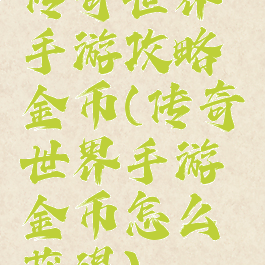 传奇世界
手游攻略
金币(传奇
世界手游
金币怎么
获得)